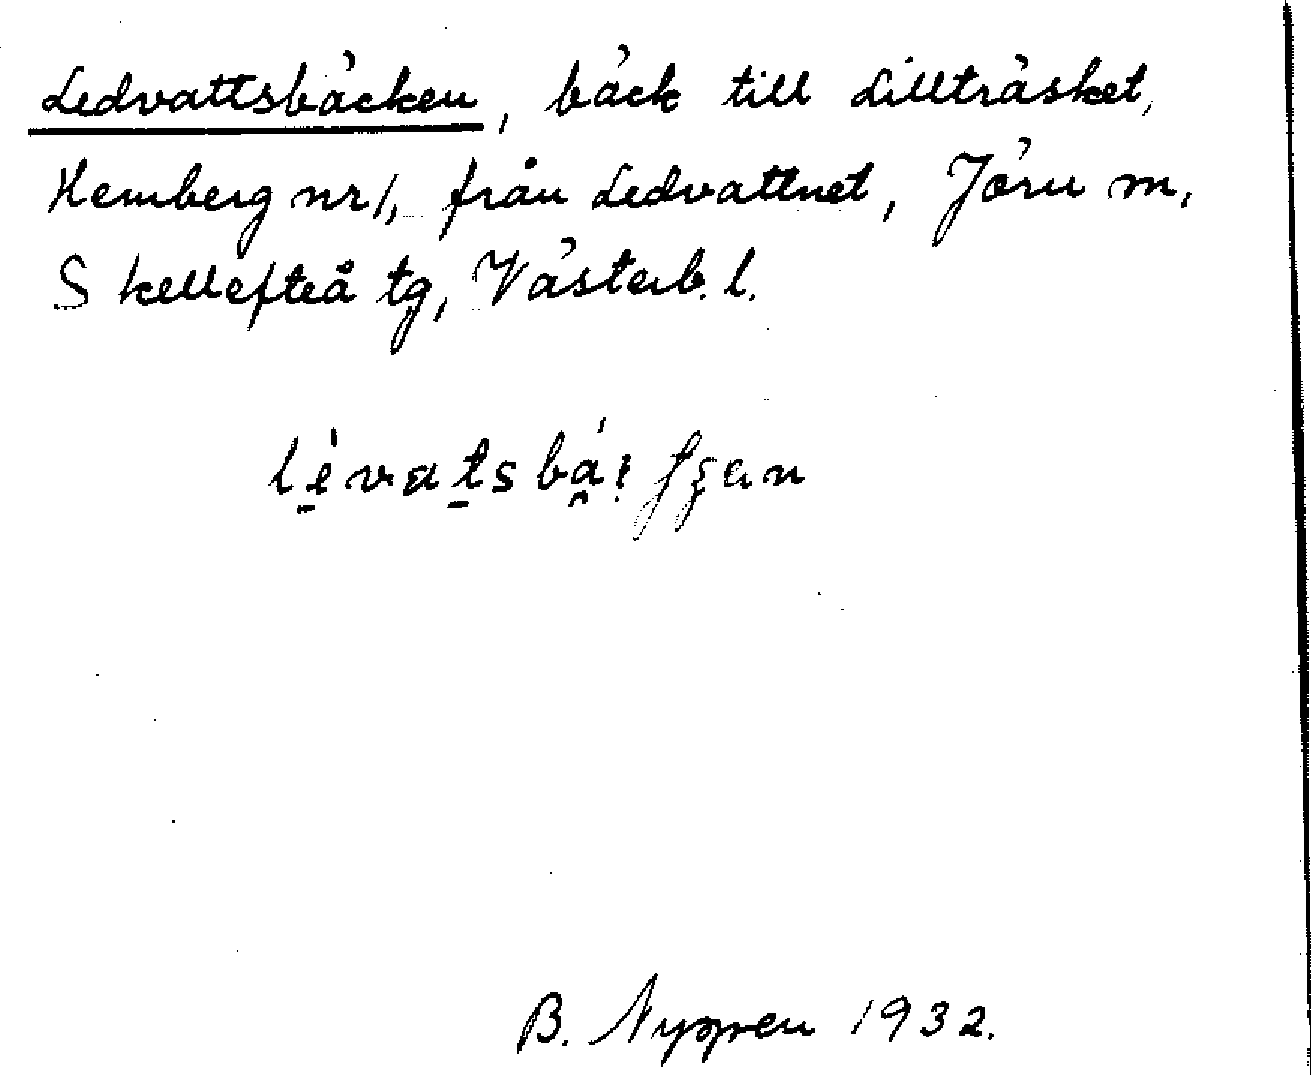 Ledvattsbäcken, bäck till Lillträsket,
Hemberg nr 1, från Ledvattnet, Jörn m,
Skellefteå tg, Västerb. l.
B. Nyppren 1932.